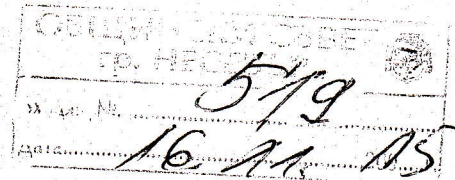 ОБЩИНСКИ СЪВЕТ
гр. НЕСЕБЪР
№ 519
Дата 16.11. 2015